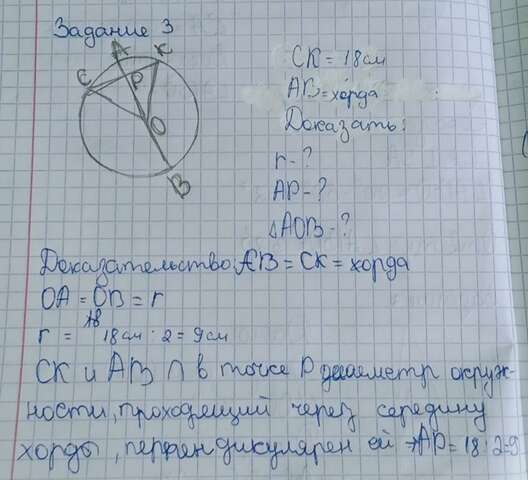 Задание 3
A K
C P
O
B
CK = 18см
AB = хорда
Доказать:
r - ?
AP - ?
△AOB - ?
Доказательство: AB = CK = хорда
OA = OB = r
r = AB 18см : 2 = 9см
CK и AB ∩ в точке P диаметр окруж-
ности, проходящий через середину
хорды, перпендикулярен ей → AP = 18 : 2 = 9